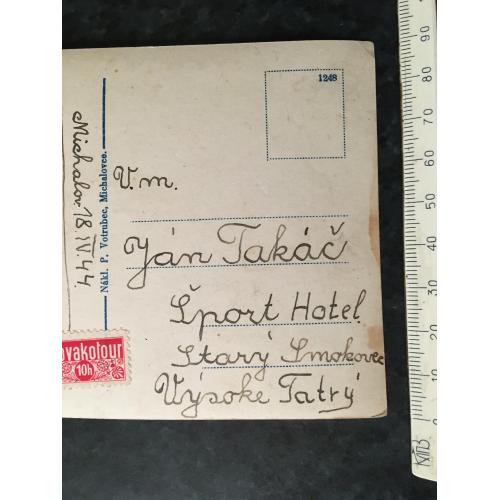 1248
V.m.
Ján Takáč
Šport Hotel
Starý Smokovec
Výsoke Tatrý
Michalov 18.IV.44.
Nákl. P. Votrubec, Michalovce.
vakotour
10h
90
80
70
60
50
40
30
20
10
0